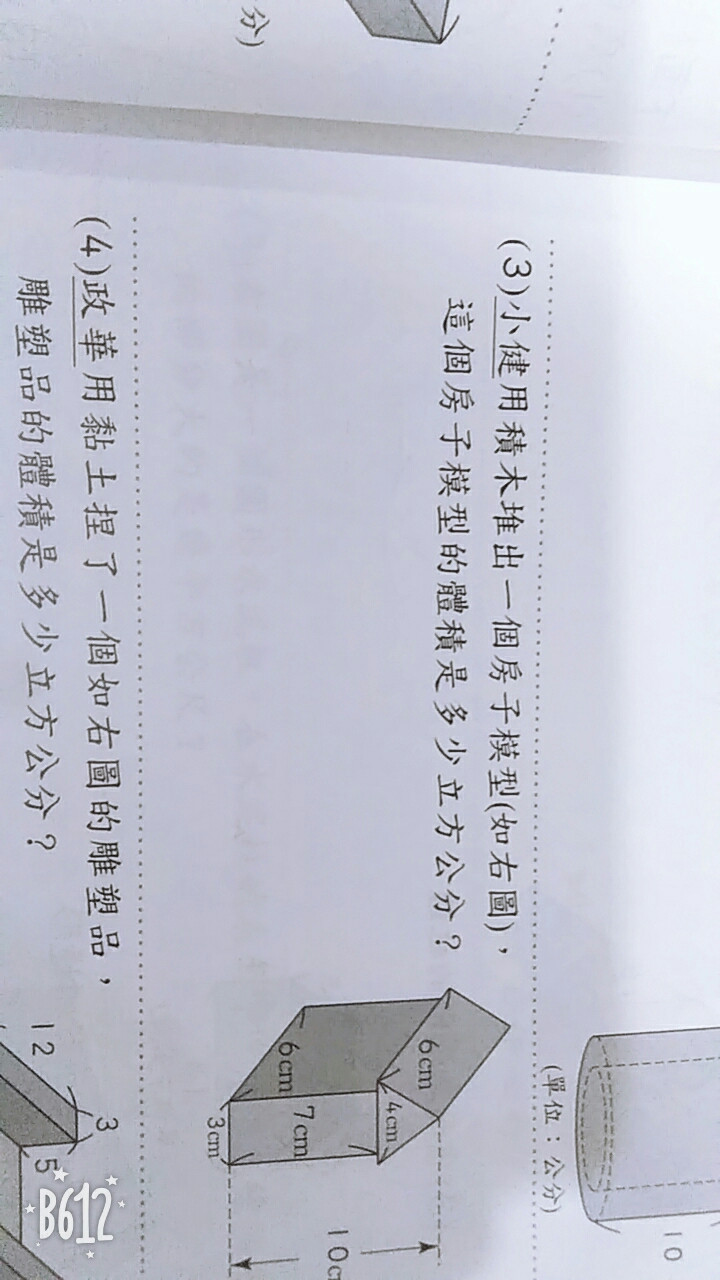 10
(單位：公分)
(3)小健用積木堆出一個房子模型(如右圖)，
這個房子模型的體積是多少立方公分？
6cm
4cm
6cm
7cm
3cm
10c
(4)政華用黏土捏了一個如右圖的雕塑品，
雕塑品的體積是多少立方公分？
3
12
5
分)
B612